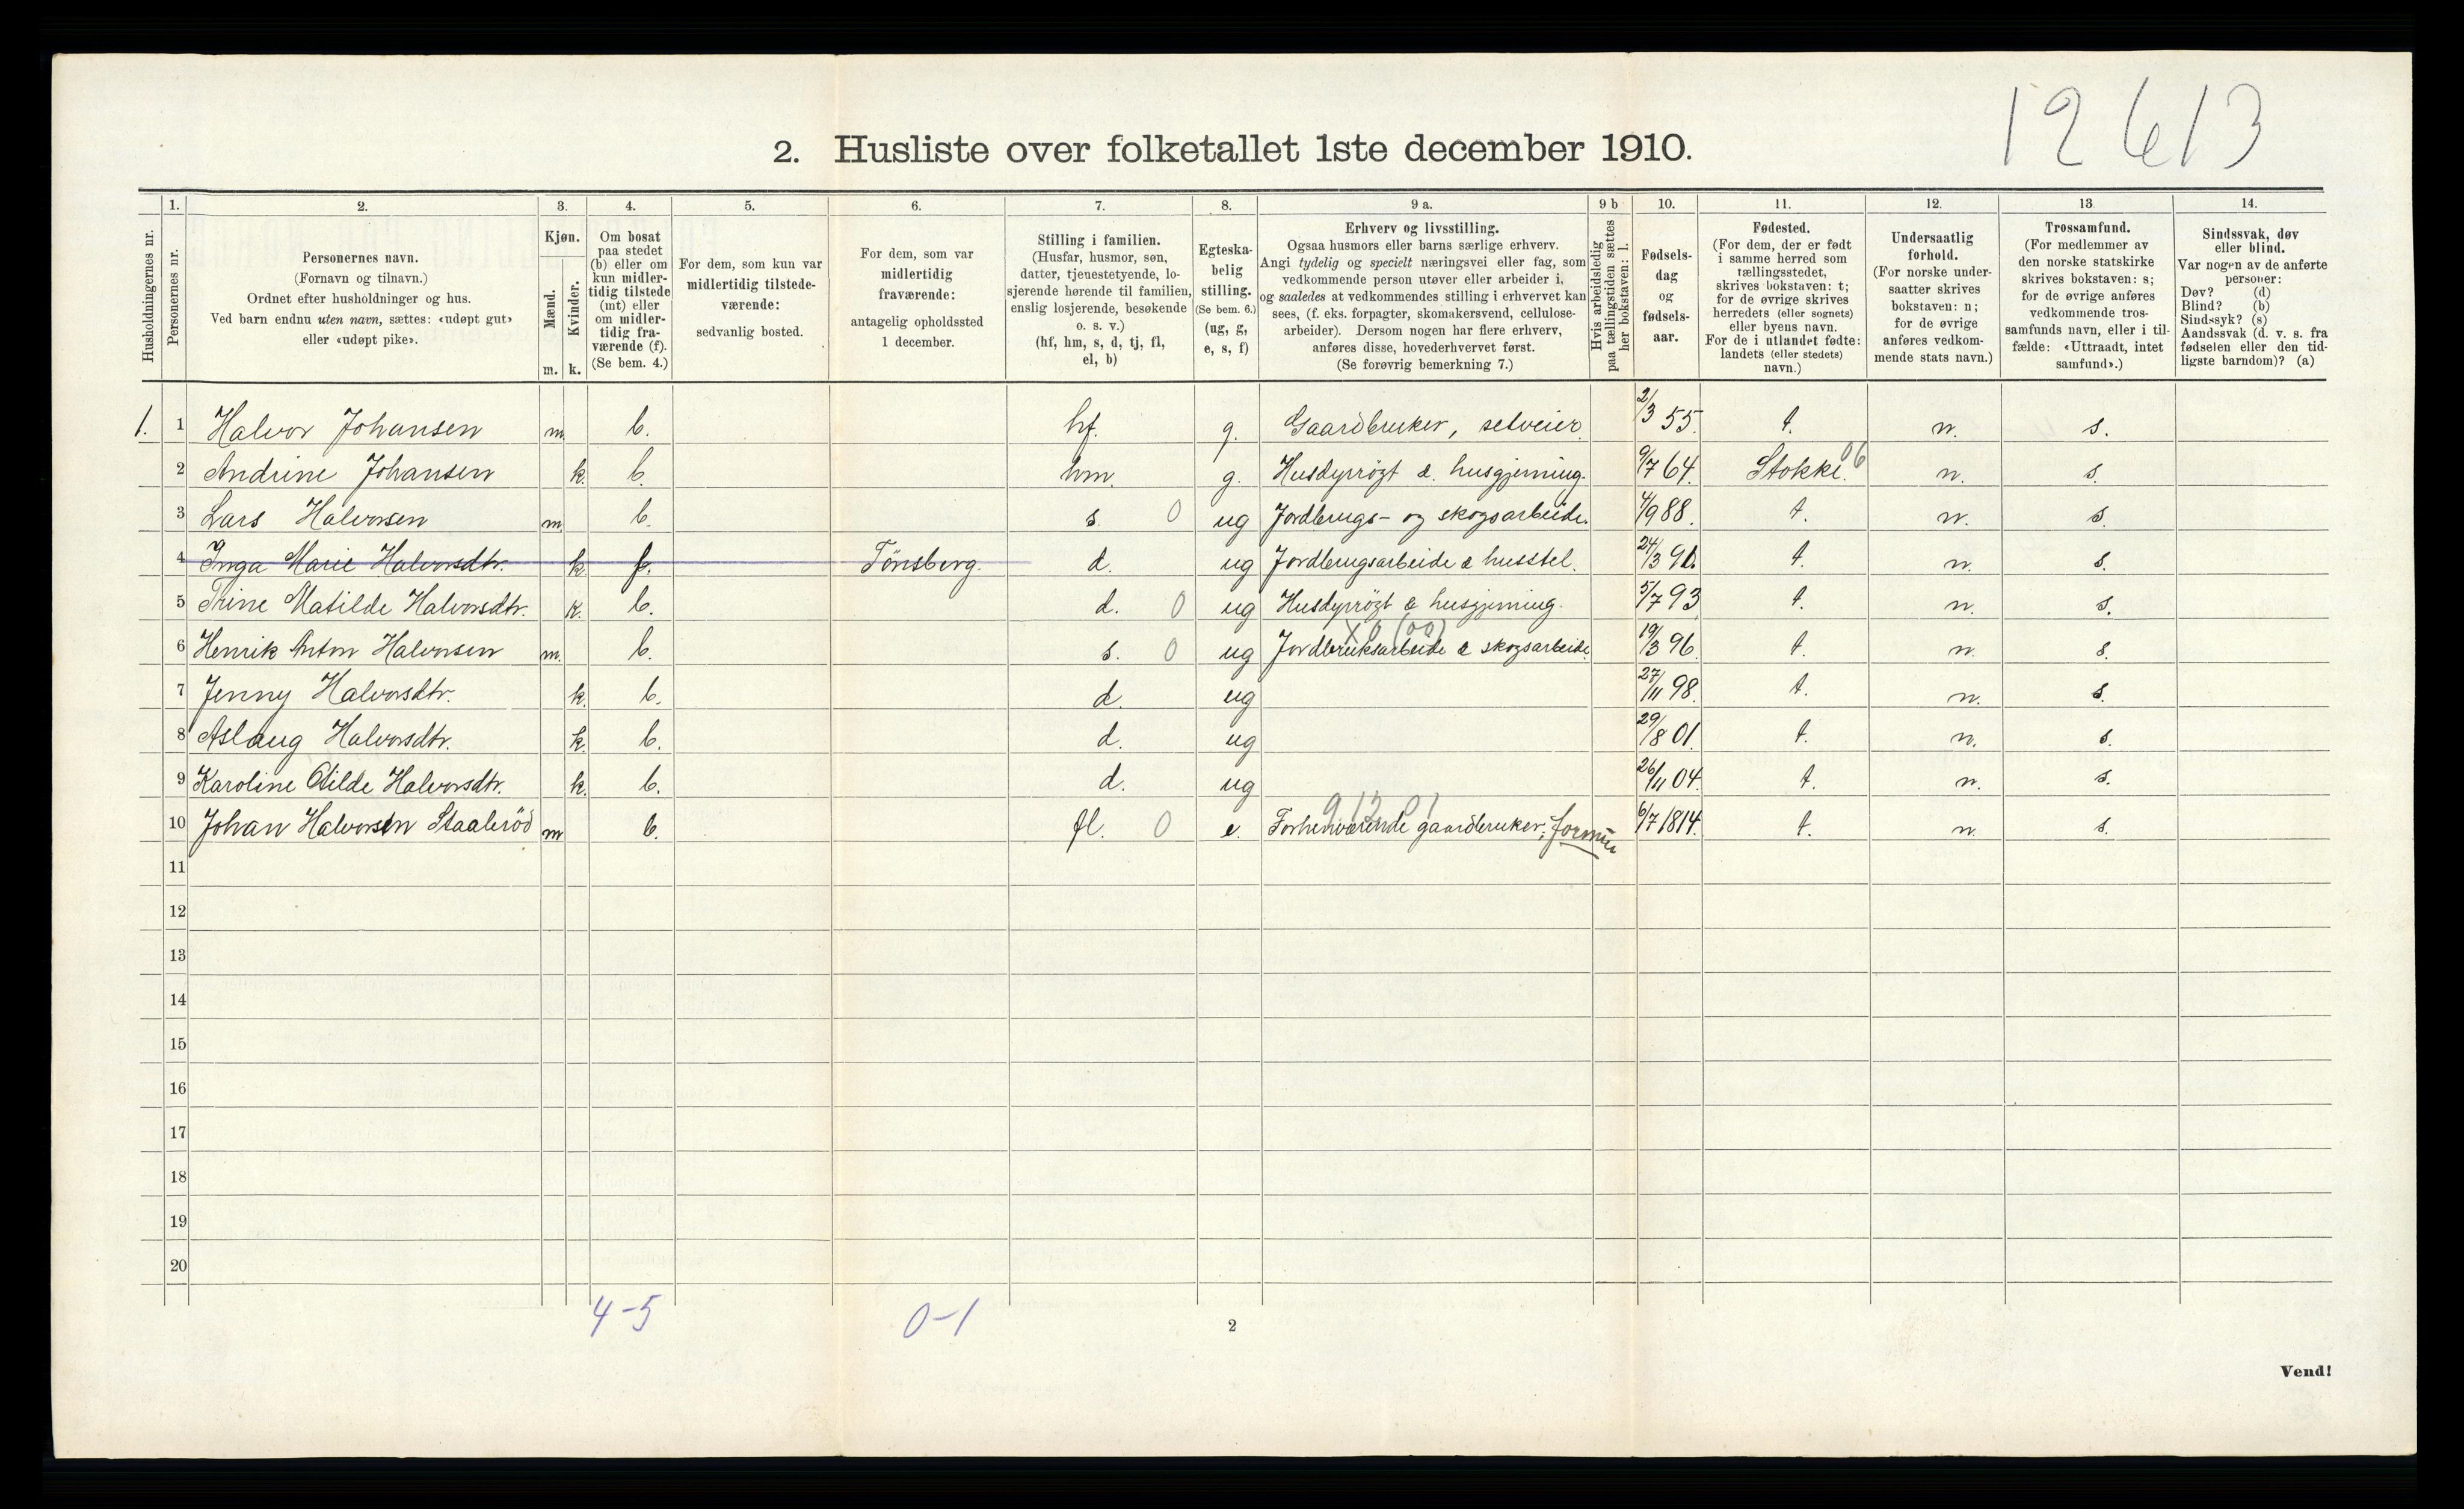 12613
2. Husliste over folketallet 1ste december 1910.
Husholdningernes nr.
1.
Personernes nr.
2.
Personernes navn.
(Fornavn og tilnavn.)
Ordnet efter husholdninger og hus.
Ved barn endnu uten navn, sættes: «udøpt gut»
eller «udøpt pike».
3.
Kjøn.
Mænd.
Kvinder.
m. k.
4.
Om bosat
paa stedet
(b) eller om
kun midler-
tidig tilstede
(mt) eller
om midler-
tidig fra-
værende (f).
(Se bem. 4.)
5.
For dem, som kun var
midlertidig tilstede-
værende:
sedvanlig bosted.
6.
For dem, som var
midlertidig
fraværende:
antagelig opholdssted
1 december.
7.
Stilling i familien.
(Husfar, husmor, søn,
datter, tjenestetyende, lo-
sjerende hørende til familien,
enslig losjerende, besøkende
o. s. v.)
(hf, hm, s, d, tj, fl,
el, b)
8.
Egteska-
belig
stilling.
(Se bem. 6.)
(ug, g,
e, s, f)
9 a.
Erhverv og livsstilling.
Ogsaa husmors eller barns særlige erhverv.
Angi tydelig og specielt næringsvei eller fag, som
vedkommende person utøver eller arbeider i,
og saaledes at vedkommendes stilling i erhvervet kan
sees, (f. eks. forpagter, skomakersvend, cellulose-
arbeider). Dersom nogen har flere erhverv,
anføres disse, hovederhvervet først.
(Se forøvrig bemerkning 7.)
9 b
Hvis arbeidsledig
paa tællingstiden sættes
her bokstaven: l.
10.
Fødsels-
dag
og
fødsels-
aar.
11.
Fødested.
(For dem, der er født
i samme herred som
tællingsstedet,
skrives bokstaven: t;
for de øvrige skrives
herredets (eller sognets)
eller byens navn.
For de i utlandet fødte:
landets (eller stedets)
navn.)
12.
Undersaatlig
forhold.
(For norske under-
saatter skrives
bokstaven: n;
for de øvrige
anføres vedkom-
mende stats navn.)
13
Trossamfund.
(For medlemmer av
den norske statskirke
skrives bokstaven: s;
for de øvrige anføres
vedkommende tros-
samfunds navn, eller i til-
fælde: «Uttraadt, intet
samfund».)
14.
Sindssvak, døv
eller blind.
Var nogen av de anførte
personer:
Døv? (d)
Blind? (b)
Sindssyk? (s)
Aandssvak (d. v. s. fra
fødselen eller den tid-
ligste barndom)? (a)
1. 1 Halvor Johansen m b. hf. g. Gaardbruker, selveier 2/3 55. t. n. s.
2 Andrine Johansen k. b. hm. g. Husdyrrögt & husgjerning. 9/7 64. Stokke. 06 n. s.
3 Lars Halvorsen m b. s. 0 ug Jordbrugs- og skogsarbeide. 4/9 88. t. n. s.
4 Inga Marie Halvorsdtr. k. f. Tönsberg. d. ug Jordbrugsarbeide & husstel. 24/3 91. t. n. s.
5 Trine Matilde Halvorsdtr. k. b. d. 0 ug Husdyrrögt & husgjerning. 5/7 93 t. n. s.
X 0 (00)
6 Henrik Anton Halvorsen m. b. s. 0 ug Jordbruksarbeide & skogsarbeide. 19/3 96. t. n. s.
7 Jenny Halvorsdtr. k. b. d. ug 27/11 98. t. n. s.
8 Aslaug Halvorsdtr. k. b. d. ug 29/8 01. t. n. s.
9 Karoline Otilde Halvorsdtr. k. b. d. ug 26/11 04. t. n. s.
10 Johan Halvorsen Staaleröd m b. fl. 0 e. Forhenværende gaardbruker; formue 6/7 1814. t. n. s.
11
12
13
14
15
16
17
18
19
20
4-5 0-1
2
Vend!